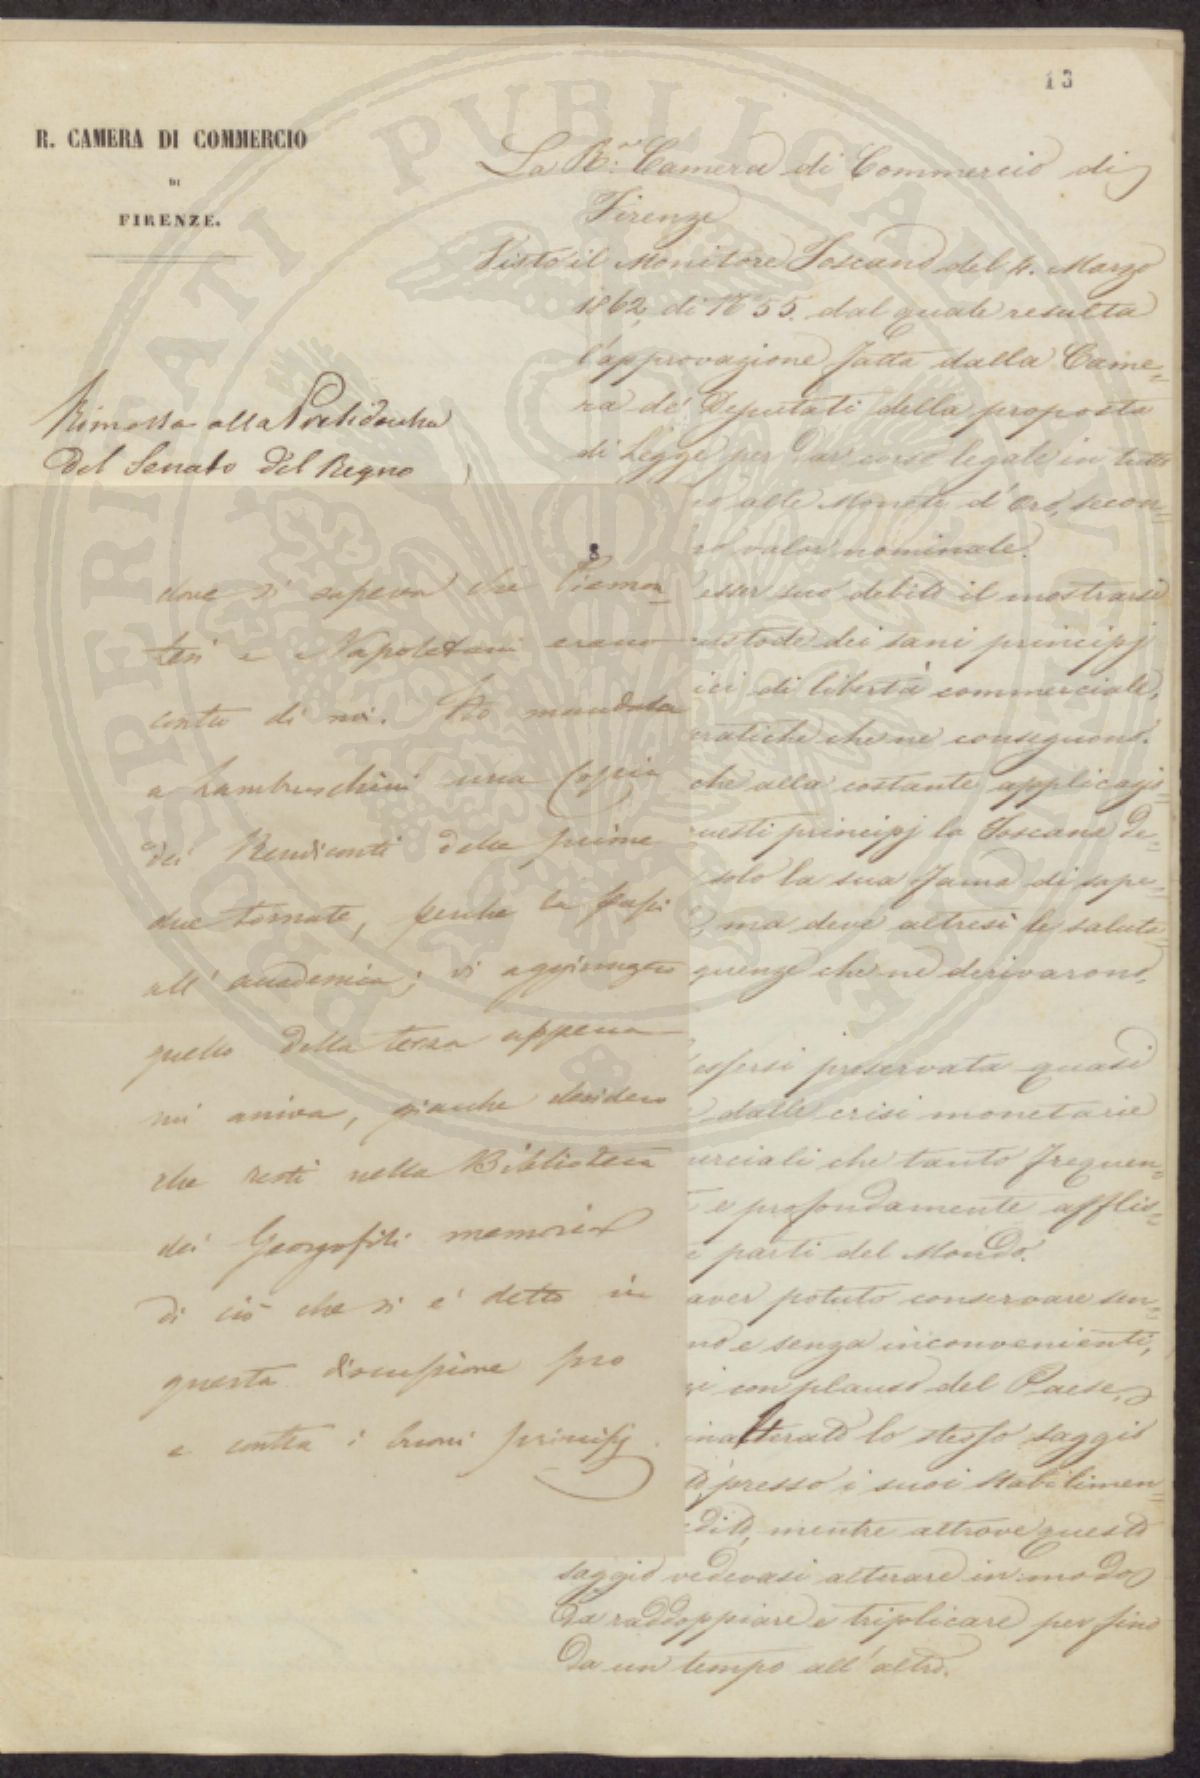 13
R. CAMERA DI COMMERCIO
DI
FIRENZE.
La R.le Camera di Commercio di
Firenze
Visto il Monitore Toscano del 4. Marzo
1862, di N° 55. dal quale resulta
l'approvazione fatta dalla Came=
ra de' Deputati della proposta
di Legge per dar corso legale in tutto
alle Monete d'Oro, secon=
valor nominale.
esser suo debito il mostrarsi
custode dei sani principj
di libertà commerciale,
pratiche che ne conseguono.
che alla costante applicazio=
questi principj la Toscana de=
solo la sua fama di sape=
ma deve altresì le saluta=
quenze che ne derivarono,
essersi preservata quasi
dalle crisi monetarie
merciali che tanto frequen=
e profondamente afflis=
parti del Mondo.
aver potuto conservare sen=
no e senza inconvenienti,
con plauso del Paese,
inalterato lo stesso saggio
presso i suoi Stabilimen=
dito, mentre altrove questo
saggio vedevasi alterare in modo
da raddoppiare e triplicare per fino
da un tempo all'altro.
Rimessa alla Presidenza
del Senato del Regno
8
dove si sapeva che Piemon=
tesi e Napoletani erano
contro di noi. Ho mandato
a Lambruschini una copia
dei Rendiconti delle prime
due tornate, perché la passi
all'accademia; vi aggiungerò
quello della terza appena
mi arriva, giacché desidero
che resti nella Biblioteca
dei Georgofili memoria
di ciò che si è detto in
questa discussione pro
e contra i buoni principj.
SPERIATI PUBLICAE